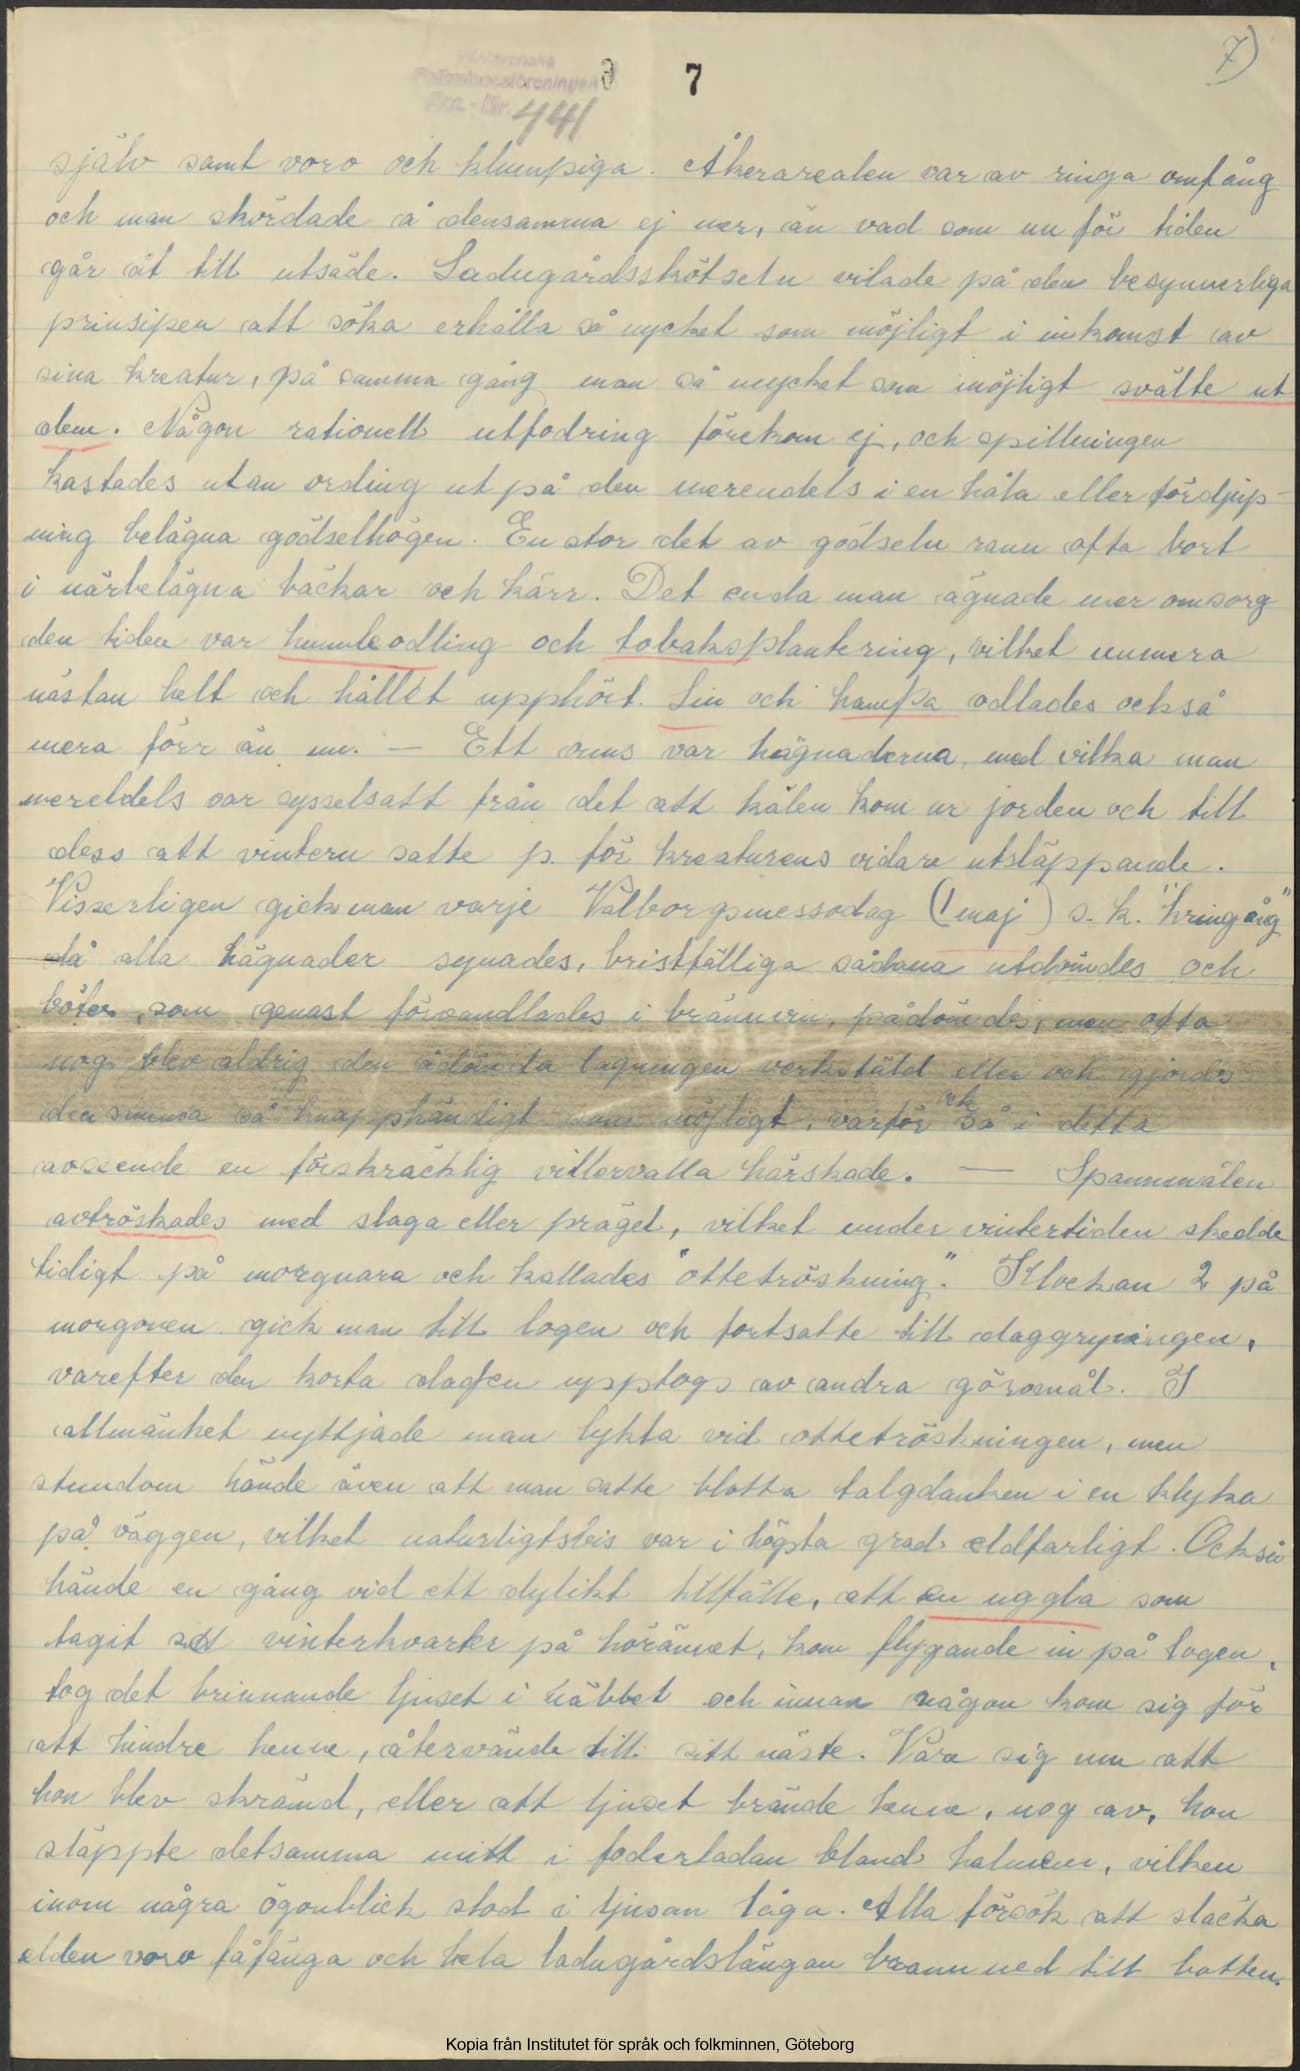 7)
7
441
själv samt voro och klumpiga. Åkerarealen var av ringa omfång
och man skördade å densamma ej mer, än vad som nu för tiden
går åt till utsäde. Ladugårdsskötseln vilade på den besynnerliga
prinsipen att söka erhålla så mycket som möjligt i inkomst av
sina kreatur, på samma gång man så mycket som möjligt svälte ut
dem. Någon rationell utfodring förekom ej, och spillningen
kastades utan ording ut på den merendels i en håla eller fördjup-
ning belägna gödselhögen. En stor del av gödseln rann ofta bort
i närbelägna bäckar och kärr. Det enda man ägnade mer omsorg
den tiden var humleodling och tobaksplantering, vilket numera
nästan helt och hållet upphört. Lin och hampa odlades också
mera förr än nu. — Ett ons var hägnaderna, med vilka man
mereldels var sysselsatt från det att kälen kom ur jorden och till
dess att vintern satte p. för kreaturens vidare utsläppande.
Visserligen gick man varje Valborgsmessodag (1 maj) s. k. "kringång"
då alla hägnader synades, bristfälliga sådana utdömdes och
böter, som genast förvandlades i brännvin, pådömdes, men ofta
nog blev aldrig den ådömta lagningen verkstäld eller och gjordes
densamma så knapphändigt som möjligt, varför ock så i detta
avseende en förskräcklig villervalla härskade. — Spannmålen
avtröskades med slaga eller prägel, vilket under vintertiden skedde
tidigt på morgnara och kallades "ottetröskning". Klockan 2 på
morgonen gick man till logen och fortsatte till daggryningen,
varefter den korta dagen upptogs av andra göromål. I
allmänhet nyttjade man lykta vid ottetröskningen, men
stundom hände även att man satte blotta talgdanken i en klyka
på väggen, vilket naturligtsvis var i högsta grad eldfarligt. Också
hände en gång vid ett dylikt tillfälle, att en uggla som
tagit sitt vinterkvarter på hörännet, kom flygande in på logen,
tog det brinnande ljuset i näbbet och innan någon kom sig för
att hindre henne, återvände till sitt näste. Vare sig nu att
hon blev skrämd, eller att ljuset brände henne, nog av, hon
släppte detsamma mitt i foderladan bland halmen, vilken
inom några ögonblick stod i ljusan låga. Alla försök att släcka
elden voro fåfänga och hela ladugårdslängan brann ned till botten.
Kopia från Institutet för språk och folkminnen, Göteborg